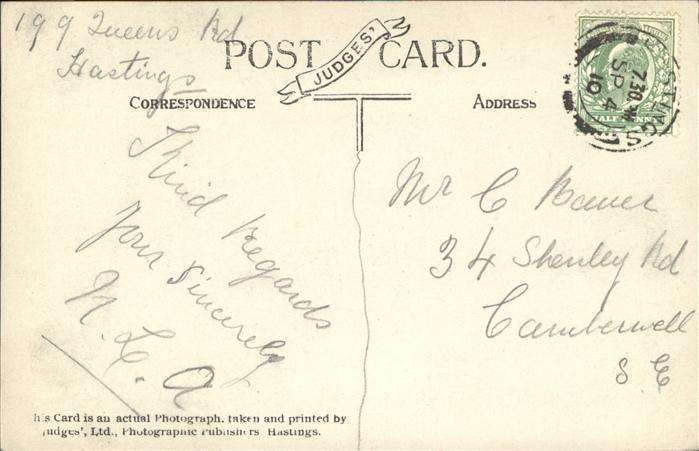 199 Queens Rd
Hastings
POST CARD.
JUDGES'
CORRESPONDENCE
ADDRESS
HASTINGS
7.30 PM
SP 4
10
HALFPENNY
Kind Regards
Your Sincerely
N. L. A
Mr C Bauer
34 Shenley Rd
Camberwell
S E
his Card is an actual Photograph, taken and printed by
Judges', Ltd., Photographic Publishers Hastings.